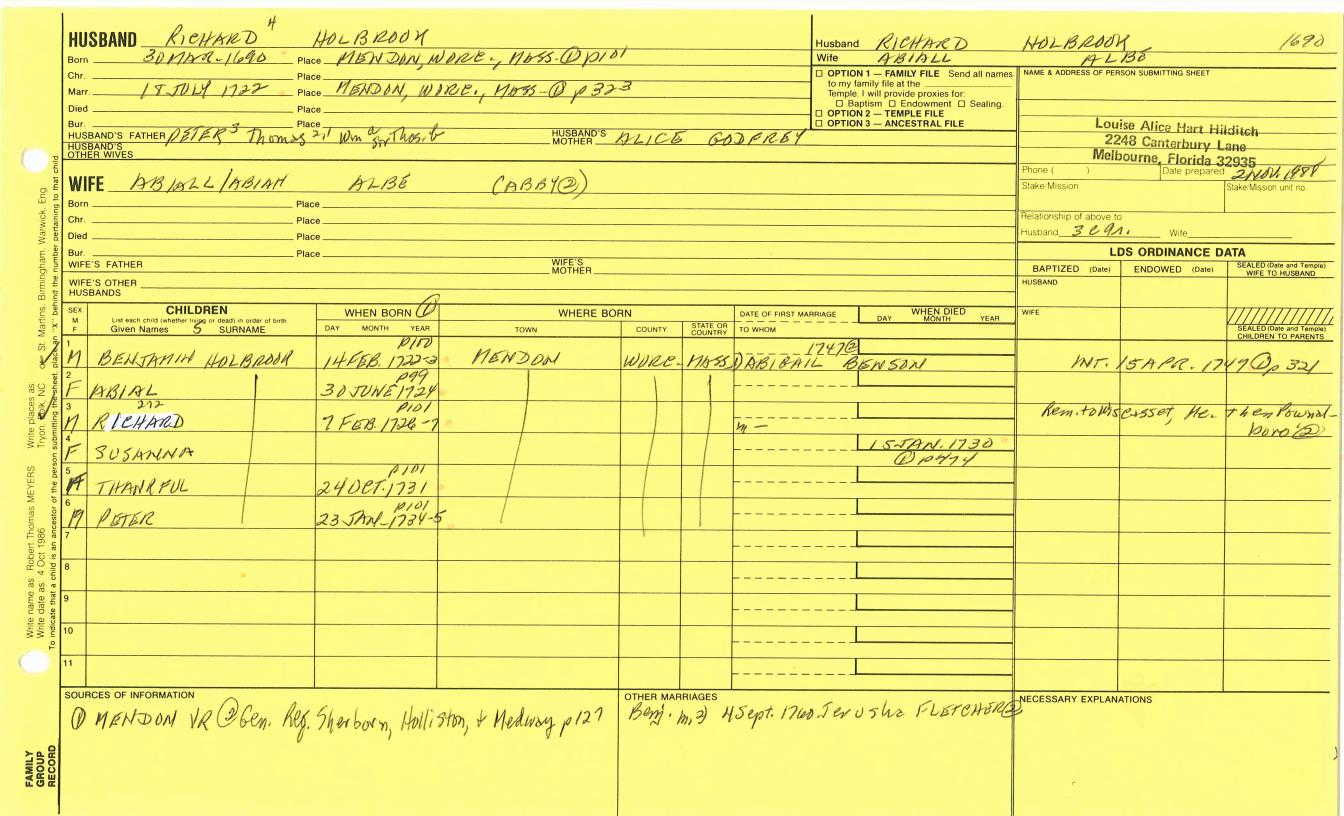 HUSBAND RICHARD 4 HOLBROOK
Born 30 MAR. 1690 Place MENDON, WORC., MASS. ① p101
Chr. Place
Marr. 18 JULY 1722 Place MENDON, WORC., MASS. ① p323
Died Place
Bur. Place
HUSBAND'S FATHER PETER 3 Thomas 2,1 Wm HUSBAND'S MOTHER ALICE GODFREY
HUSBAND'S OTHER WIVES
WIFE ABIALL/ABIAH ALBE (ABBY②)
Born Place
Chr. Place
Died Place
Bur. Place
WIFE'S FATHER WIFE'S MOTHER
WIFE'S OTHER HUSBANDS
Husband RICHARD HOLBROOK 1690
Wife ABIALL ALBE
☐ OPTION 1 — FAMILY FILE Send all names
to my family file at the
Temple. I will provide proxies for:
☐ Baptism ☐ Endowment ☐ Sealing.
☐ OPTION 2 — TEMPLE FILE
☐ OPTION 3 — ANCESTRAL FILE
NAME & ADDRESS OF PERSON SUBMITTING SHEET
Louise Alice Hart Hilditch
2248 Canterbury Lane
Melbourne, Florida 32935
Phone ( ) Date prepared 2 NOV. 1988
Stake/Mission Stake/Mission unit no.
Relationship of above to
Husband 3 c Wife
LDS ORDINANCE DATA
BAPTIZED (Date) ENDOWED (Date) SEALED (Date and Temple) WIFE TO HUSBAND
HUSBAND
WIFE
SEALED (Date and Temple) CHILDREN TO PARENTS
SEX M F
CHILDREN
List each child (whether living or dead) in order of birth
Given Names SURNAME
WHEN BORN ①
DAY MONTH YEAR
WHERE BORN
TOWN COUNTY STATE OR COUNTRY
DATE OF FIRST MARRIAGE
TO WHOM
WHEN DIED
DAY MONTH YEAR
1 M BENJAMIN HOLBROOK p100 14 FEB. 1722-3 MENDON WORC. MASS. 1747② ABIGAIL BENSON INT. 15 APR. 1747 ① p321
2 F ABIAL p99 30 JUNE 1724
3 M RICHARD 272 p101 7 FEB. 1726-7 m — Rem. to Wiscasset, Me. then Pownal-
boro ②
4 F SUSANNA 15 JAN. 1730
① p474
5 THANKFUL p101 24 OCT. 1731
6 M PETER p101 23 JAN. 1734-5
7
8
9
10
11
SOURCES OF INFORMATION
① MENDON VR ② Gen. Reg. Sherborn, Holliston, & Medway p127
OTHER MARRIAGES
Benj. m. 2) 4 Sept. 1760 Jerusha FLETCHER②
NECESSARY EXPLANATIONS
FAMILY GROUP RECORD
Write name as Robert Thomas MEYERS Write places as Tryon, Polk, NC or St. Martins, Birmingham, Warwick, Eng
Write date as 4 Oct 1986
To indicate that a child is an ancestor of the person submitting the sheet, place an "X" behind the number pertaining to that child